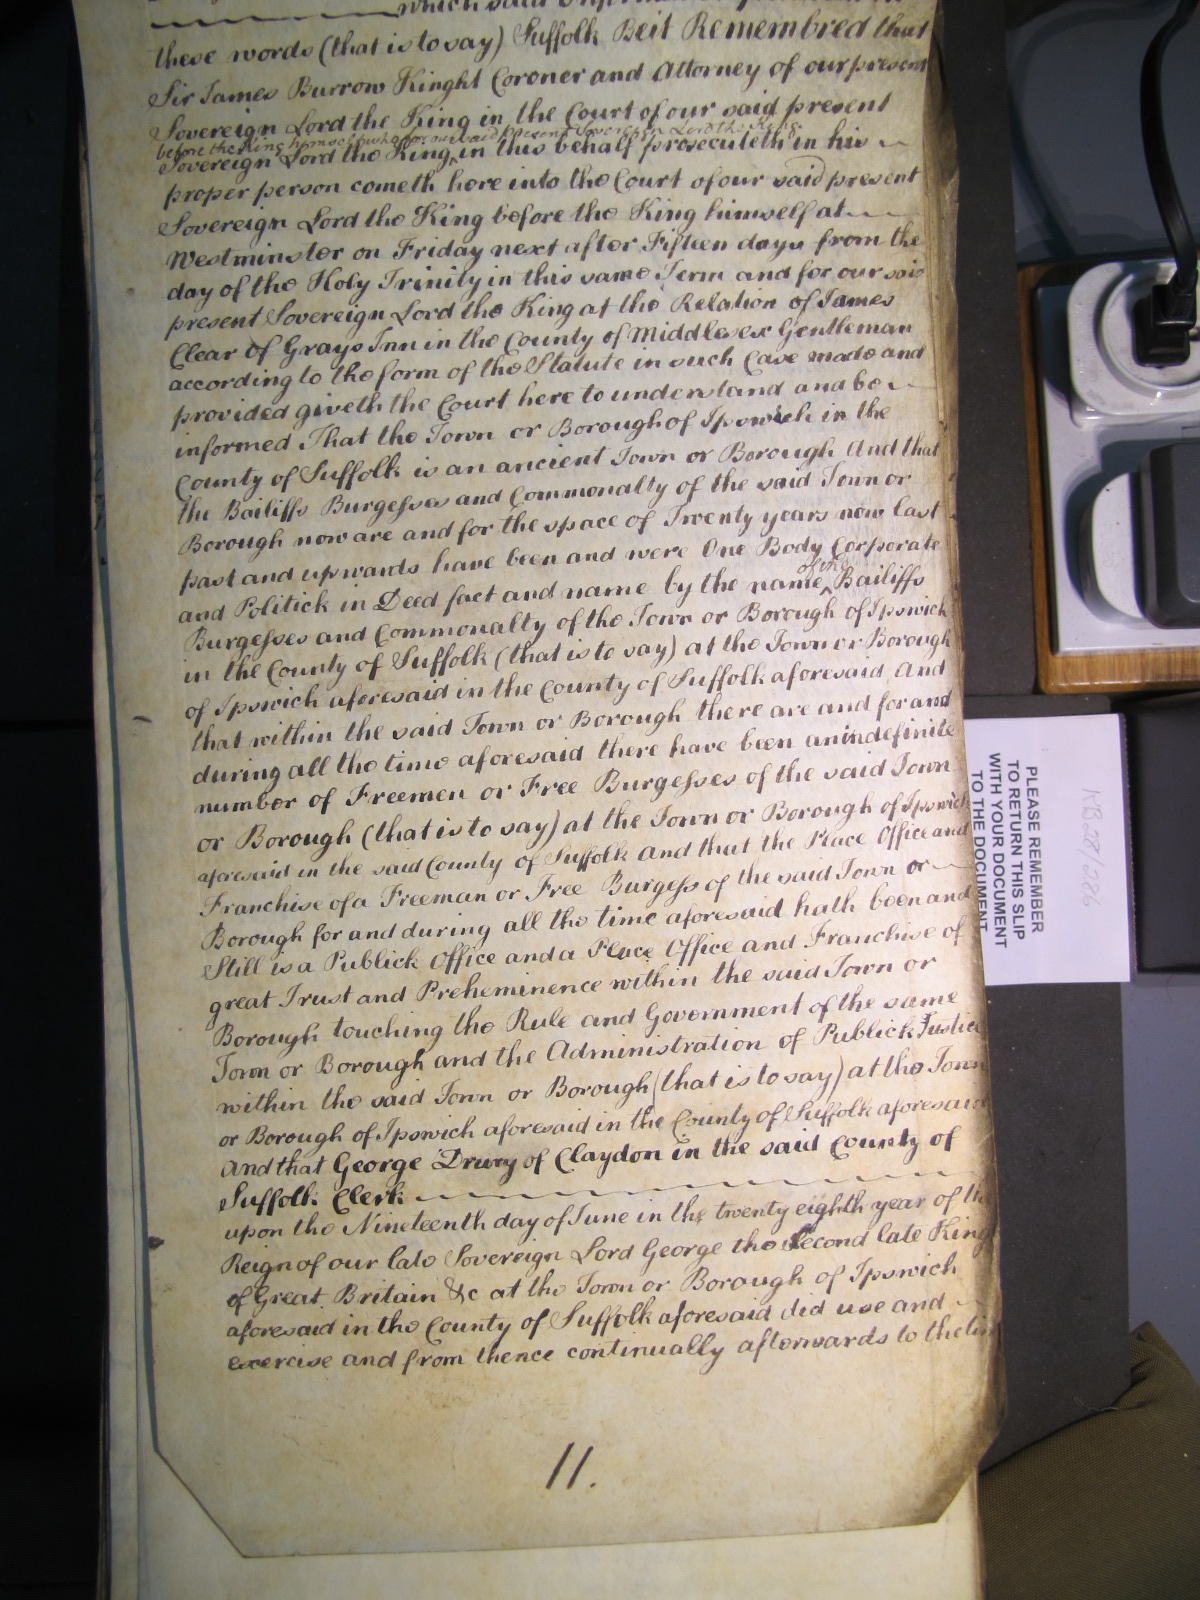 which said Information
these words (that is to say) Suffolk Be it Remembred that
Sir James Burrow Kinght Coroner and Attorney of our present
Sovereign Lord the King in the Court of our said present
before the King himself who for our said present Sovereign Lord the King
Sovereign Lord the King in this behalf prosecuteth in his
proper person cometh here into the Court of our said present
Sovereign Lord the King before the King himself at
Westminster on Friday next after Fifteen days from the
day of the Holy Trinity in this same Term and for our said
present Sovereign Lord the King at the Relation of James
Clear of Grays Inn in the County of Middlesex Gentleman
according to the form of the Statute in such Case made and
provided giveth the Court here to understand and be
informed That the Town or Borough of Ipswich in the
County of Suffolk is an ancient Town or Borough And that
the Bailiffs Burgesses and Commonalty of the said Town or
Borough now are and for the space of Twenty years now last
past and upwards have been and were One Body Corporate
of the
and Politick in Deed fact and name by the name Bailiffs
Burgesses and Commonalty of the Town or Borough of Ipswich
in the County of Suffolk (that is to say) at the Town or Borough
of Ipswich aforesaid in the County of Suffolk aforesaid And
that within the said Town or Borough there are and for and
during all the time aforesaid there have been an indefinite
number of Freemen or Free Burgesses of the said Town
or Borough (that is to say) at the Town or Borough of Ipswich
aforesaid in the said County of Suffolk And that the Place Office and
Franchise of a Freeman or Free Burgess of the said Town or
Borough for and during all the time aforesaid hath been and
Still is a Publick Office and a Place Office and Franchise of
great Trust and Preheminence within the said Town or
Borough touching the Rule and Government of the same
Town or Borough and the Administration of Publick Justice
within the said Town or Borough (that is to say) at the Town
or Borough of Ipswich aforesaid in the County of Suffolk aforesaid
And that George Drury of Claydon in the said County of
Suffolk Clerk
upon the Nineteenth day of June in the twenty eighth year of the
Reign of our late Sovereign Lord George the Second late King
of Great Britain &c at the Town or Borough of Ipswich
aforesaid in the County of Suffolk aforesaid did use and
exercise and from thence continually afterwards to the time
11.
PLEASE REMEMBER
TO RETURN THIS SLIP
WITH YOUR DOCUMENT
TO THE DOCUMENT
KB 28/286